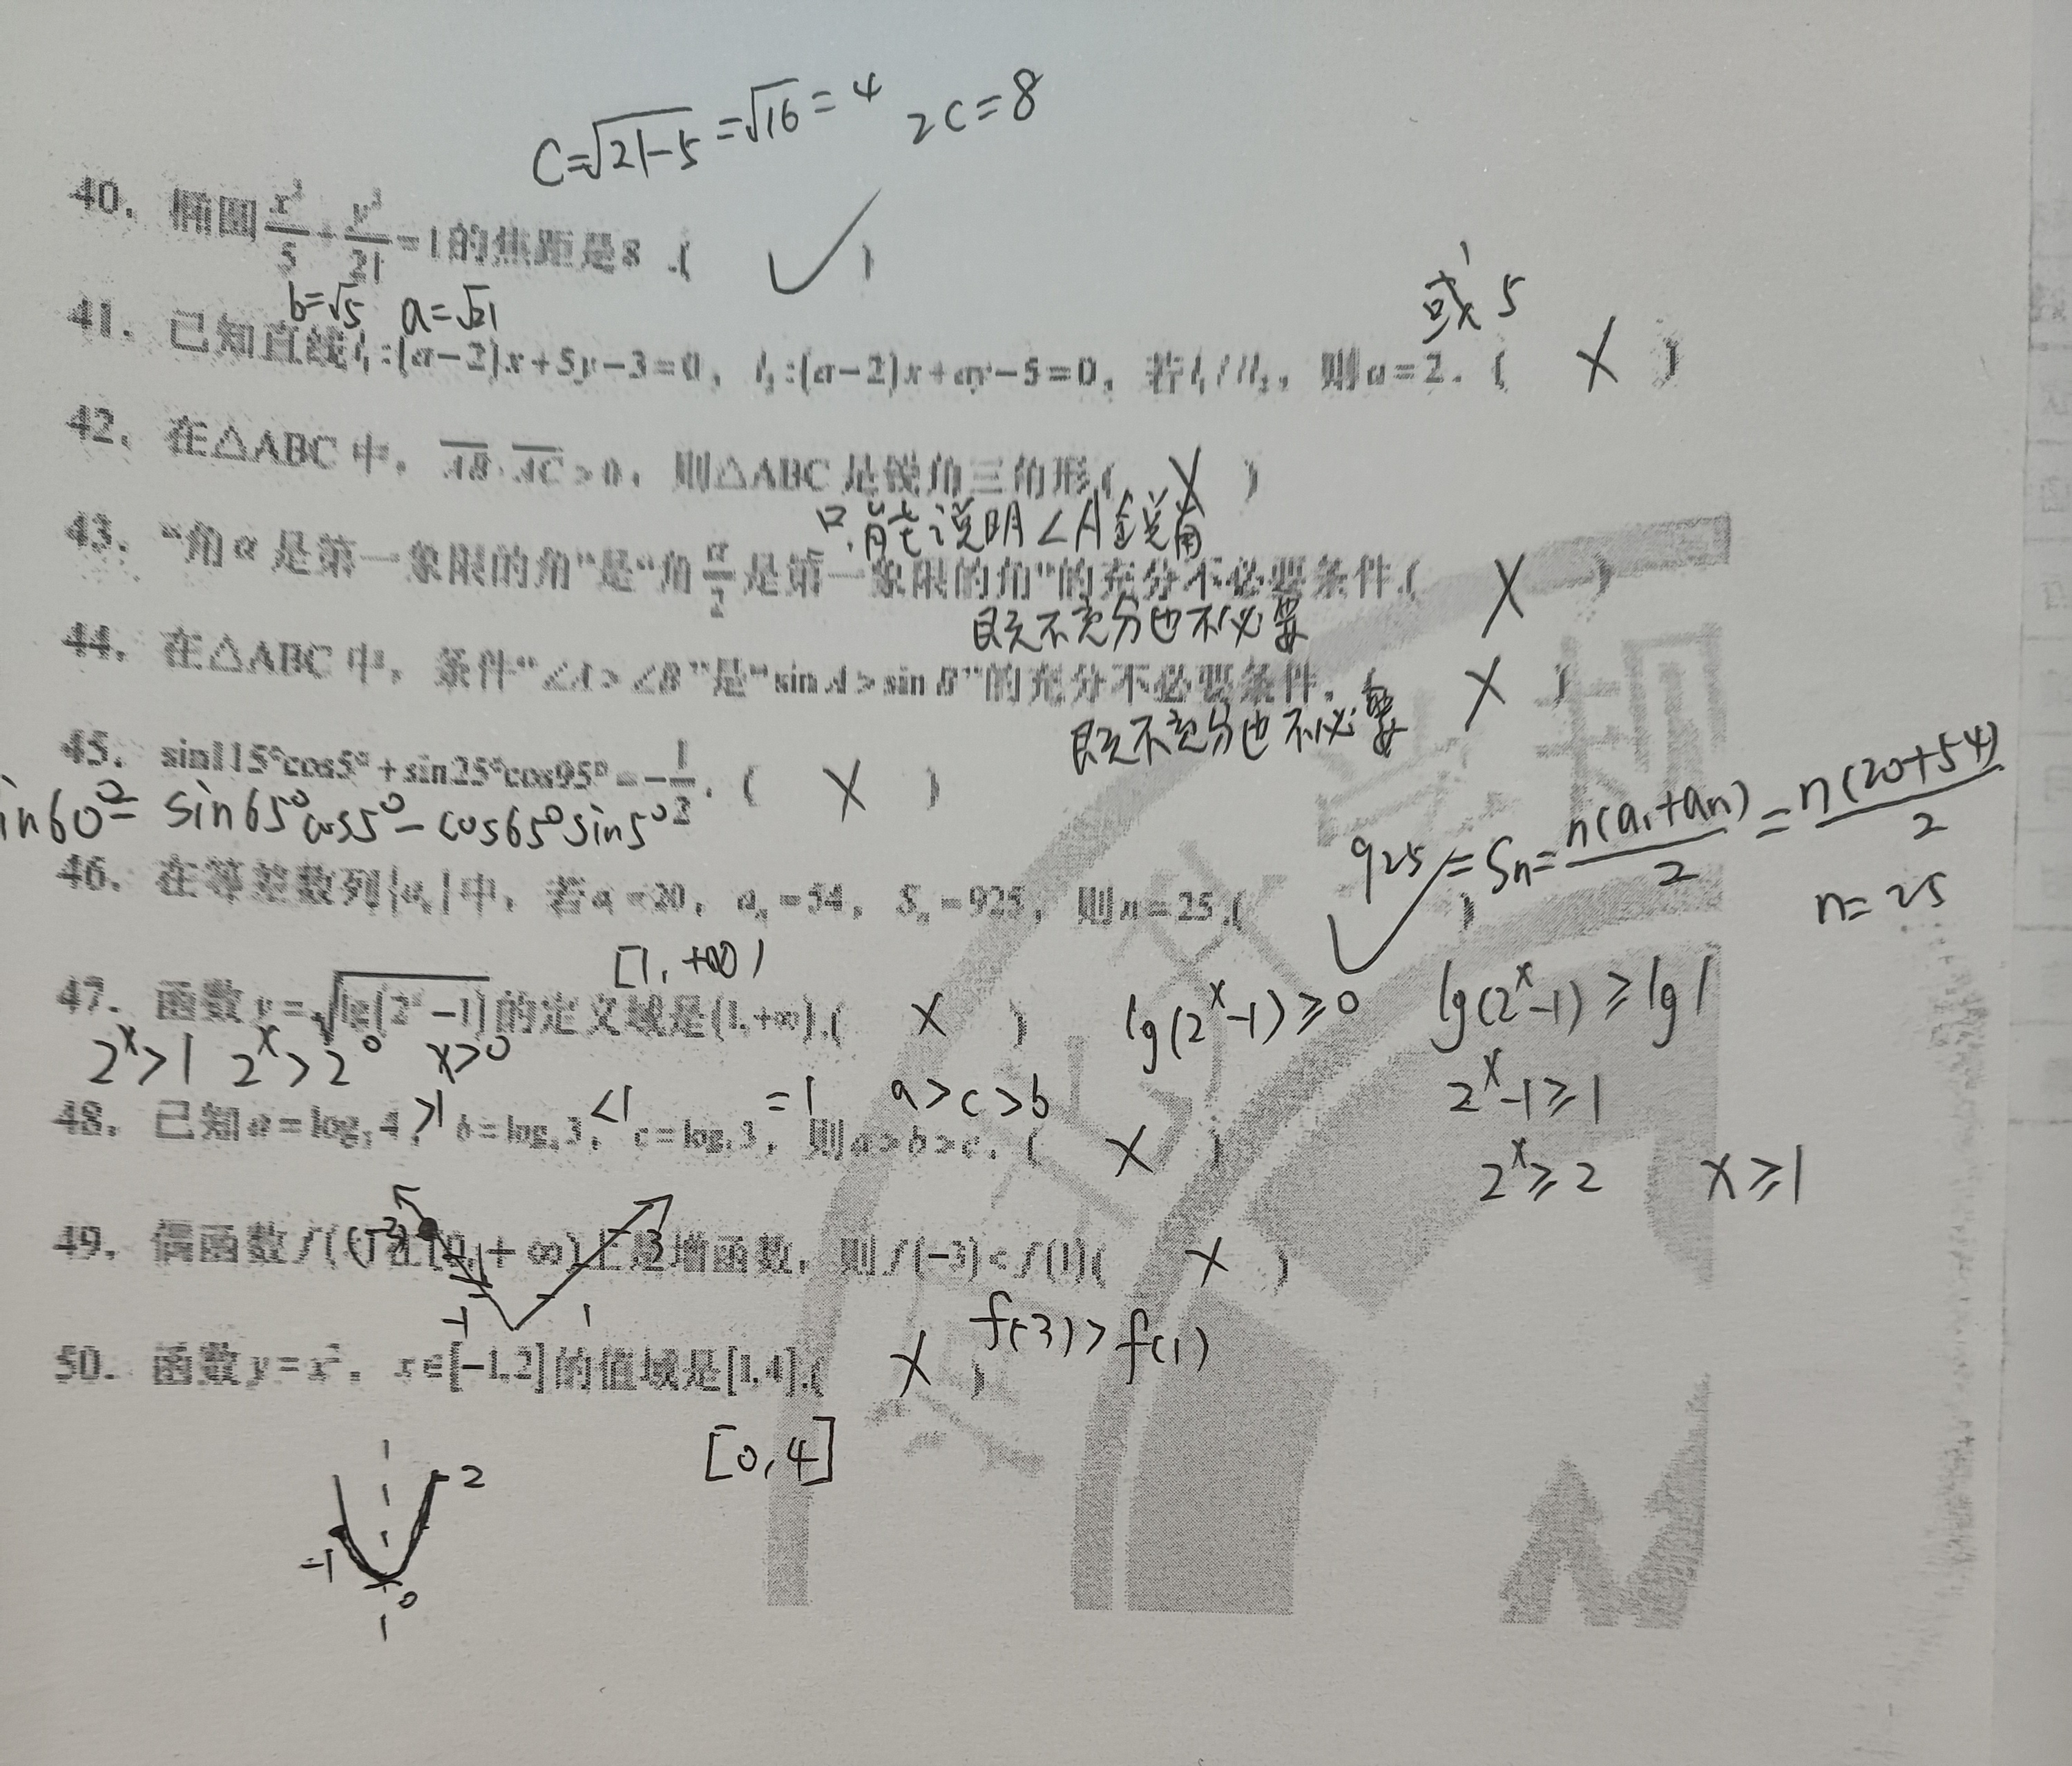 C=√21-5=√16=4 2C=8
40. 椭圆x²/5+y²/21=1的焦距是8.( ✓ )
b=√5 a=√21
或 5
41. 已知直线l₁:(a-2)x+5y-3=0, l₂:(a-2)x+ay-5=0, 若l₁//l₂, 则a=2. ( X )
42. 在△ABC中, AB·AC>0, 则△ABC是锐角三角形( X )
只能说明∠A锐角
43. “角α是第一象限的角”是“角α/2是第一象限的角”的充分不必要条件.( X )
既不充分也不必要
44. 在△ABC中, 条件“∠A>∠B”是“sin A>sin B”的充分不必要条件. ( X )
既不充分也不必要
45. sin115°cos5°+sin25°cos95°=-1/2. ( X )
in60°= sin65°cos5°-cos65°sin5°
925=Sn=n(a₁+an)/2=n(20+54)/2
46. 在等差数列{aₙ}中, 若a =20, aₙ=54, Sₙ=925, 则n=25.( ✓ )
n=25
[1,+∞)
47. 函数y=√lg(2ˣ-1)的定义域是(1,+∞).( X )
lg(2ˣ-1)≥0 lg(2ˣ-1)≥lg1
2ˣ>1 2ˣ>2⁰ x>0
2ˣ-1≥1
>1 <1 =1 a>c>b
48. 已知a=log 4, b=log 3, c=log 3, 则a>b>c. ( X )
2ˣ≥2 x≥1
49. 偶函数f( 在[0,+∞)上是增函数, 则f(-3)<f(1)( X )
-3 3
-1 1
f(3)>f(1)
50. 函数y=x², x∈[-1,2]的值域是[1,4].( X )
[0,4]
2
-1
0